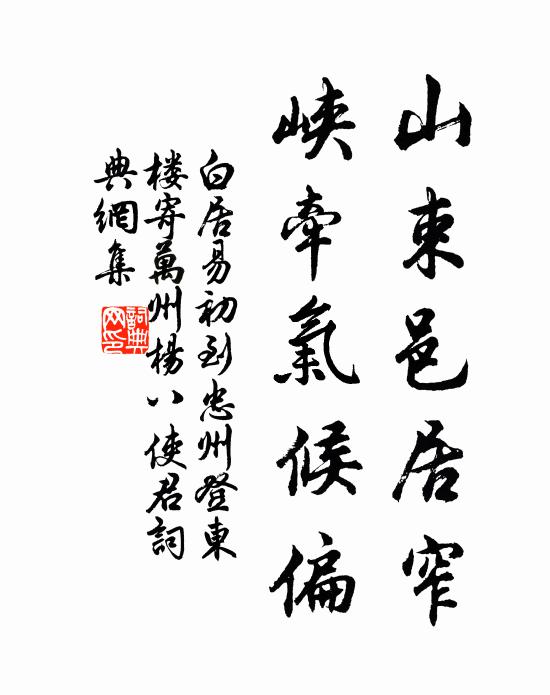 山束邑居窄
峽牽氣候偏
白居易初到忠州登東
樓寄萬州楊八使君詞
典網集
詞典
网印